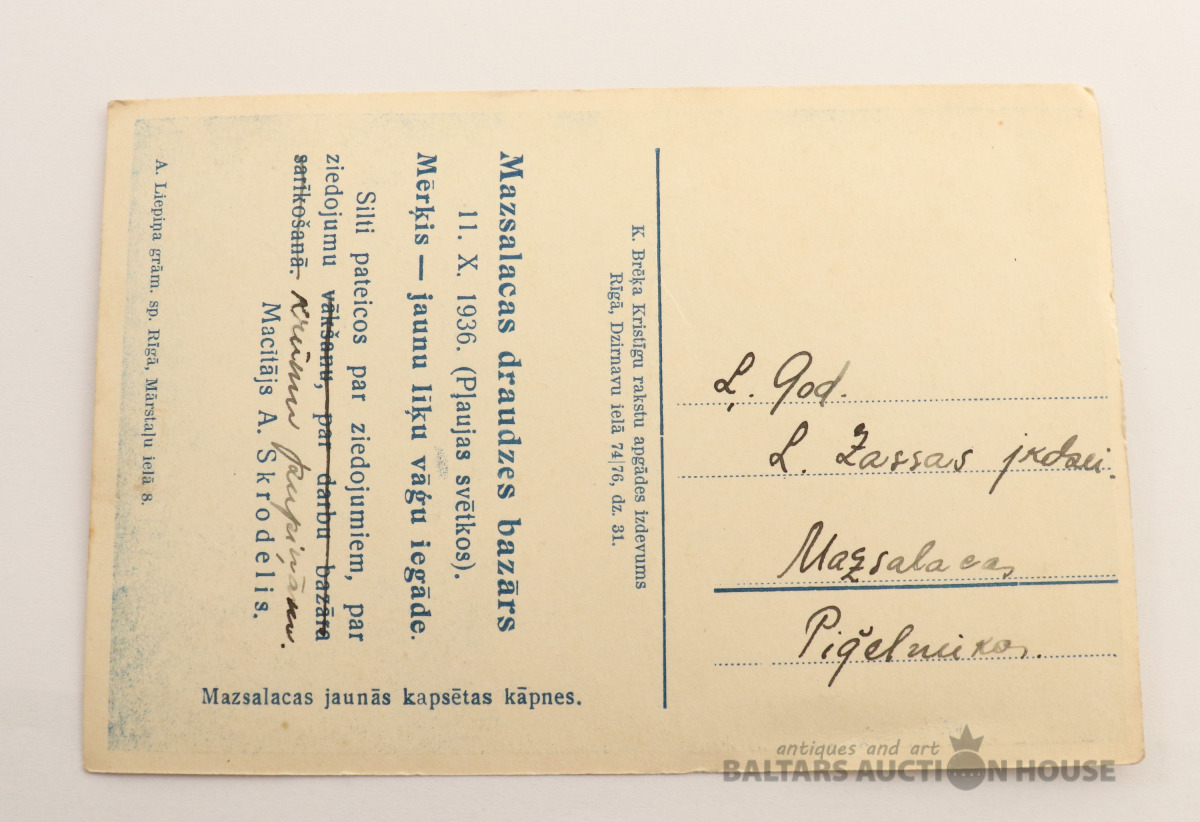 Mazsalacas draudzes bazārs
11. X. 1936. (Pļaujas svētkos).
Mērķis — jaunu līķu vāģu iegāde.
Silti pateicos par ziedojumiem, par
ziedojumu vākšanu, par darbu bazāra
sarīkošanā. krūmu
Macītājs A. Skrodelis.
A. Liepiņa grām. sp. Rīgā, Mārstaļu ielā 8.
Mazsalacas jaunās kapsētas kāpnes.
K. Brēķa Kristīgu rakstu apgādes izdevums
Rīgā, Dzirnavu ielā 74|76, dz. 31.
Ļ. God.
L. Zassas jkdzei.
Mazsalacas
antiques and art
BALTARS AUCTION HOUSE